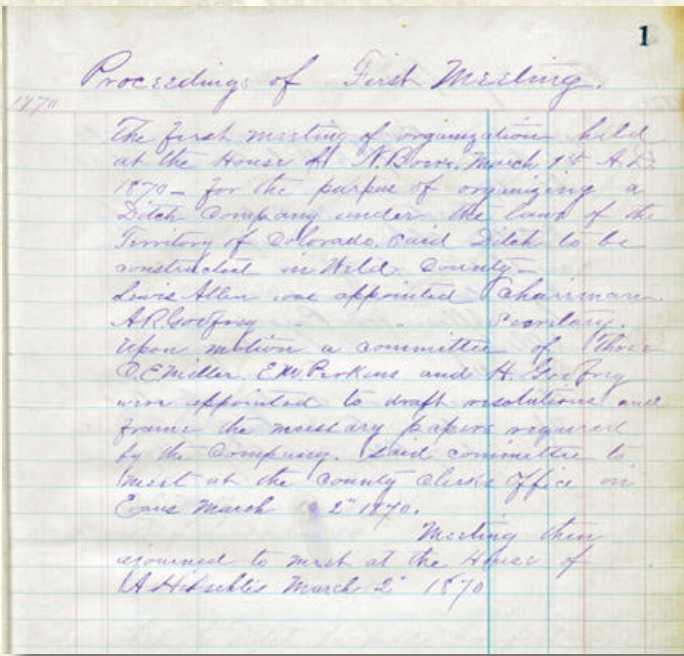 1
Proceedings of First Meeting.
1870
The first meeting of organization held
at the House of N. Bowr. March 1st A.D.
1870 – for the purpus of organizing a
Ditch Company under the laws of the
Territory of Colorado, said Ditch to be
constructed in Weld County –
Lewis Allen was appointed Chairman.
A R Godfrey " Secretary.
Upon motion a committee of three
E.W. Perkins and H. Godfrey
were appointed to draft resolutions and
frame the papers required
by the Company. Said committee to
meet at the County Clerks Office in
Evans March 2" 1870.
Meeting then
ajourned to meet at the House of
March 2" 1870